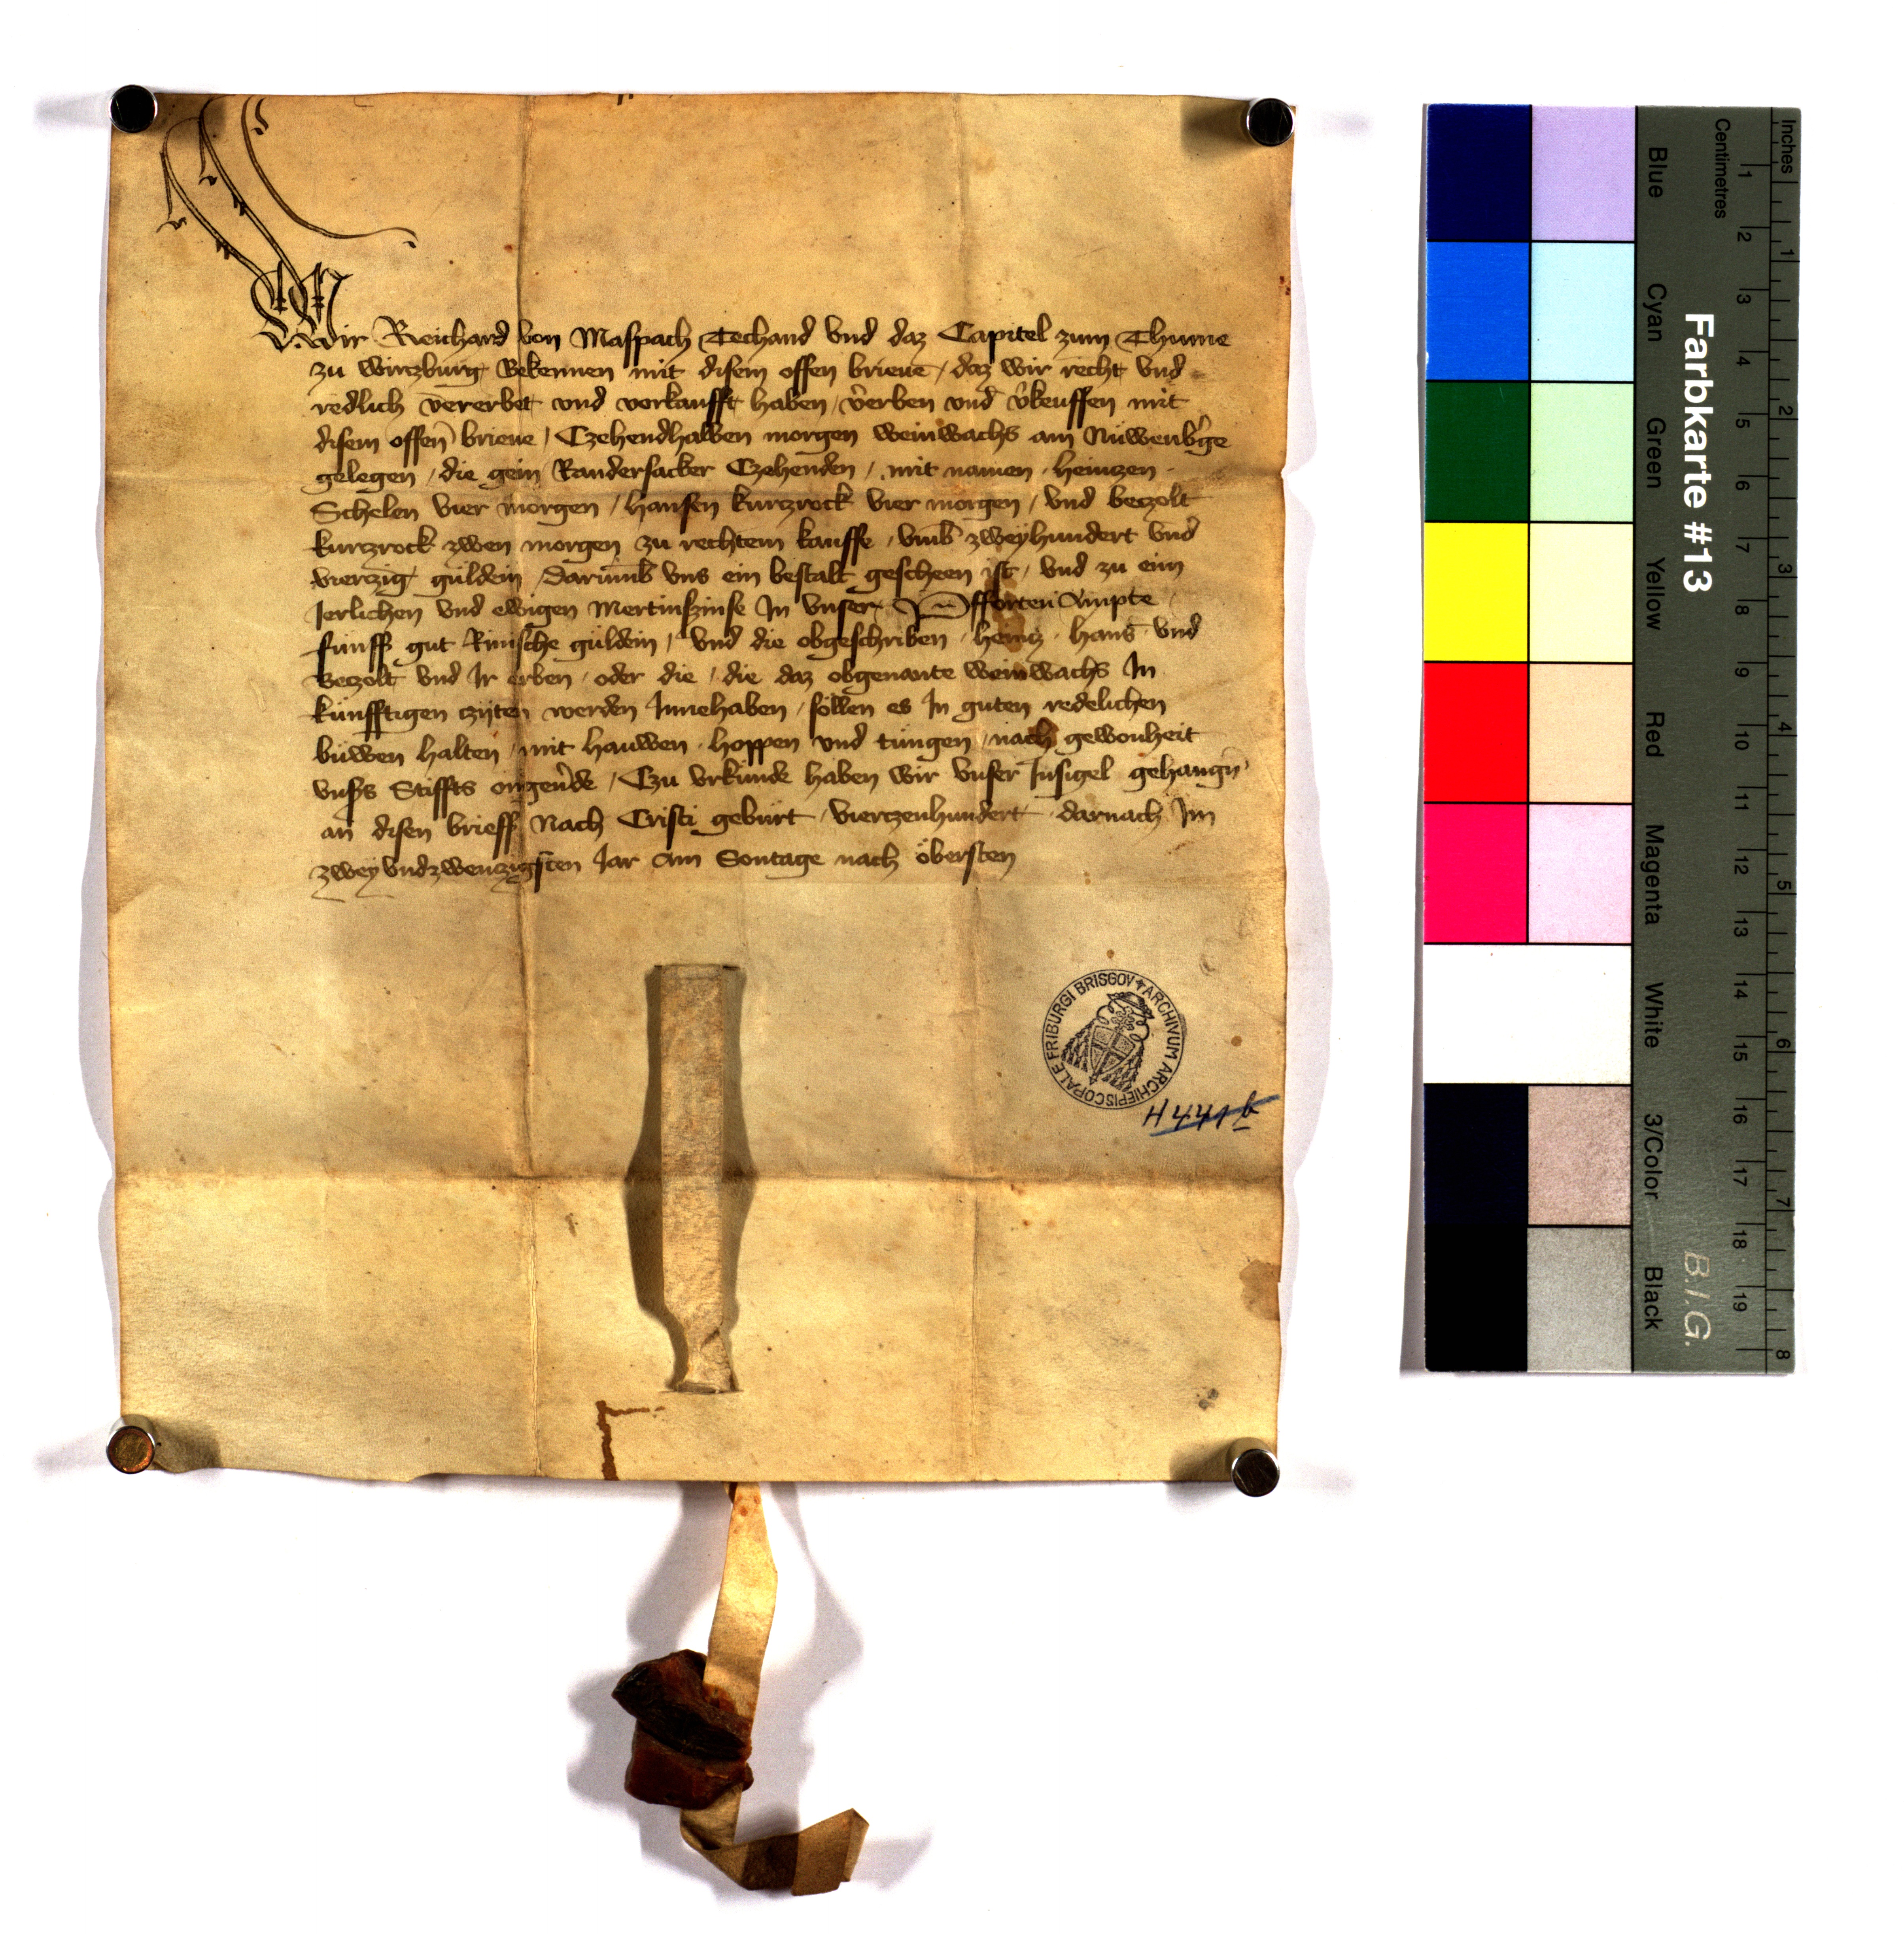 Wir Reichard von Maspach Techand vnd daz Capitel zum Thume
zu wirczburg Bekennen mit disem offen brieue / daz wir recht vnd
redlich vererbet vnd vorkaufft haben / v̾erben vnd v̾keuffen mit
disem offen̄ brieue / Czehendhalben morgen weinwachs am Nuwenb̾ge
gelegen / die gein Randersacker Czehenden / mit namen · heinczen ·
Schelen vier morgen / hansen kurczrock vier morgen / vnd beczolt
kurczrock zwen morgen zu rechtem kauffe / vmb zweyhundert vnd
vierczig guldein / darumb vns ein bestalt gescheen ist / vnd zu eim
Jerlichen vnd ewigen Mertinszinse In vnser Pfforten Ampte
funff gut Rinische guldein / vnd die obgeschriben · heincz · hans · vnd
Beczolt vnd Ir erben / oder die / die daz obgenante weinwachs In
kunfftigen czyten werden Innehaben / sollen es In guten redelichen
buwen halten / mit hauwen · hoppen vnd tungen / nach gewonheit
vnsers Stiffts / Czu vrkunde haben wir vnser Insigel gehangn̄
an disen brieff Nach Cristi geburt · vierczenhundert · darnach Im
zweyvndzwenczigsten Jar am Sontage nach obersten
ARCHIVUM ARCHIEPISCOPALE FRIBURGI BRISGOV
H 441 b
Farbkarte #13
B.I.G.
Blue Cyan Green Yellow Red Magenta White 3/Color Black
Centimetres
1 2 3 4 5 6 7 8 9 10 11 12 13 14 15 16 17 18 19
Inches
1 2 3 4 5 6 7 8